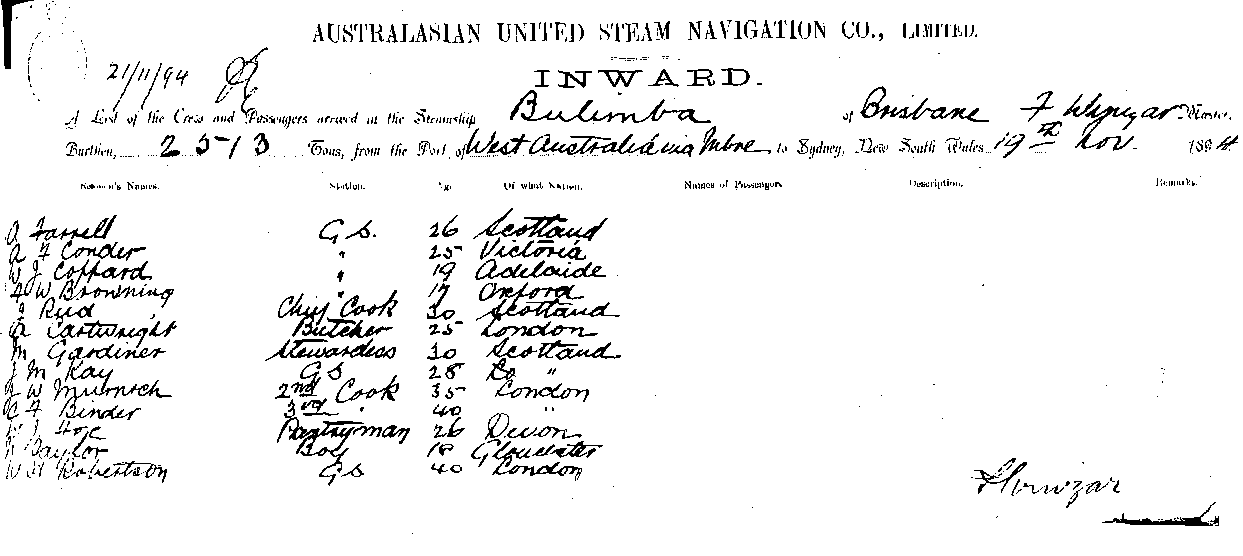 AUSTRALASIAN UNITED STEAM NAVIGATION CO., LIMITED.
21/11/94
INWARD.
A List of the Crew and Passengers arrived in the Steamship Bulimba of Brisbane F Master,
Burthen, 2513 Tons, from the Port of West Australia via Mbne to Sydney, New South Wales 19th Nov. 1894
Seamen's Names. Station. Age Of what Nation. Names of Passengers Description. Remarks.
A Farrell G S. 26 Scotland
A F Conder " 25 Victoria
W J Coppard " 19 Adelaide
W Browning " 17 Oxford
J Reid Chief Cook 30 Scotland
A Cartwright Butcher 25 London
M Gardiner Stewardess 30 Scotland
J M Kay G S 28 Do "
W 2nd Cook 35 London
F Binder 3rd " 40 "
Pantryman 26 Devon
Taylor Boy 18 Gloucester
W H Robertson G S 40 London